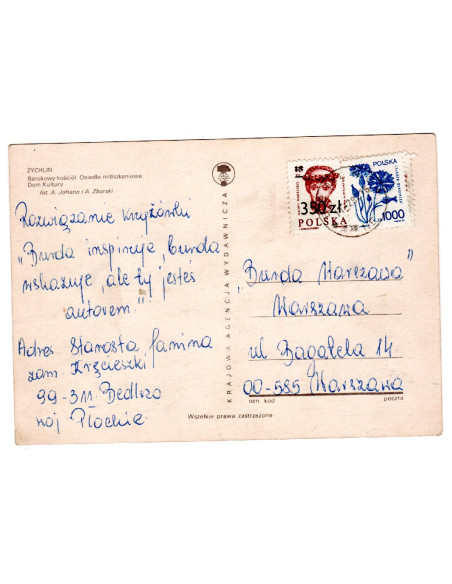 ŻYCHLIN
Barokowy kościół. Osiedle mieszkaniowe
Dom Kultury
fot. A. Johann i A. Zborski
Rozwiązanie krzyżówki
„Burda inspiruje, burda
wskazuje, ale ty jesteś
autorem."
Adres. Starosta Janina
zam. Krzęcieszki
99-311 Bedlno
woj Płockie
KRAJOWA AGENCJA WYDAWNICZA
350 zł
POLSKA
POLSKA
1000
„Burda Warszawa"
Warszawa
ul Bagatela 14
00-585 Warszawa
ozn kod
poczta
Wszelkie prawa zastrzeżone